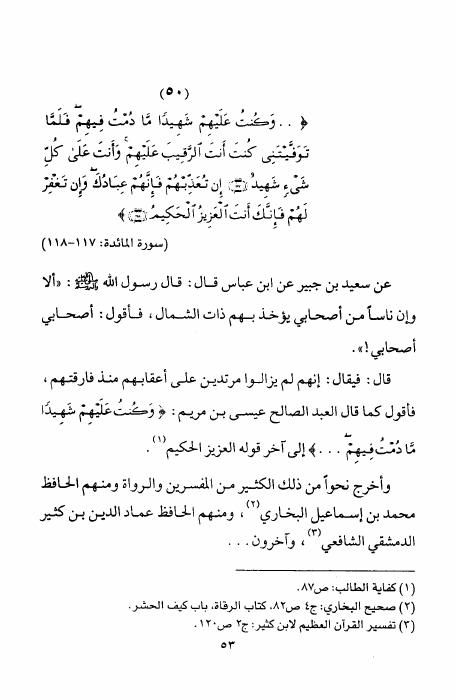 (٥٠)
﴿ . . وَكُنتُ عَلَيْهِمْ شَهِيدًا مَّا دُمْتُ فِيهِمْ ۖ فَلَمَّا
تَوَفَّيْتَنِي كُنتَ أَنتَ الرَّقِيبَ عَلَيْهِمْ ۚ وَأَنتَ عَلَىٰ كُلِّ
شَيْءٍ شَهِيدٌ ﴿١١٧﴾ إِن تُعَذِّبْهُمْ فَإِنَّهُمْ عِبَادُكَ ۖ وَإِن تَغْفِرْ
لَهُمْ فَإِنَّكَ أَنتَ الْعَزِيزُ الْحَكِيمُ ﴿١١٨﴾ ﴾
(سورة المائدة: ١١٧-١١٨)
عن سعيد بن جبير عن ابن عباس قال: قال رسول الله ﷺ: «ألا
وإن ناساً من أصحابي يؤخذ بهم ذات الشمال، فأقول: أصحابي
أصحابي!».
قال: فيقال: إنهم لم يزالوا مرتدين على أعقابهم منذ فارقتهم،
فأقول كما قال العبد الصالح عيسى بن مريم: ﴿ وَكُنتُ عَلَيْهِمْ شَهِيدًا
مَّا دُمْتُ فِيهِمْ ۖ . . . ﴾ إلى آخر قوله العزيز الحكيم(١).
وأخرج نحواً من ذلك الكثير من المفسرين والرواة ومنهم الحافظ
محمد بن إسماعيل البخاري(٢)، ومنهم الحافظ عماد الدين بن كثير
الدمشقي الشافعي(٣)، وآخرون . . .
(١) كفاية الطالب: ص٨٧.
(٢) صحيح البخاري: ج٤ ص٨٢، كتاب الرقاة، باب كيف الحشر.
(٣) تفسير القرآن العظيم لابن كثير: ج٢ ص١٢٠.
٥٣